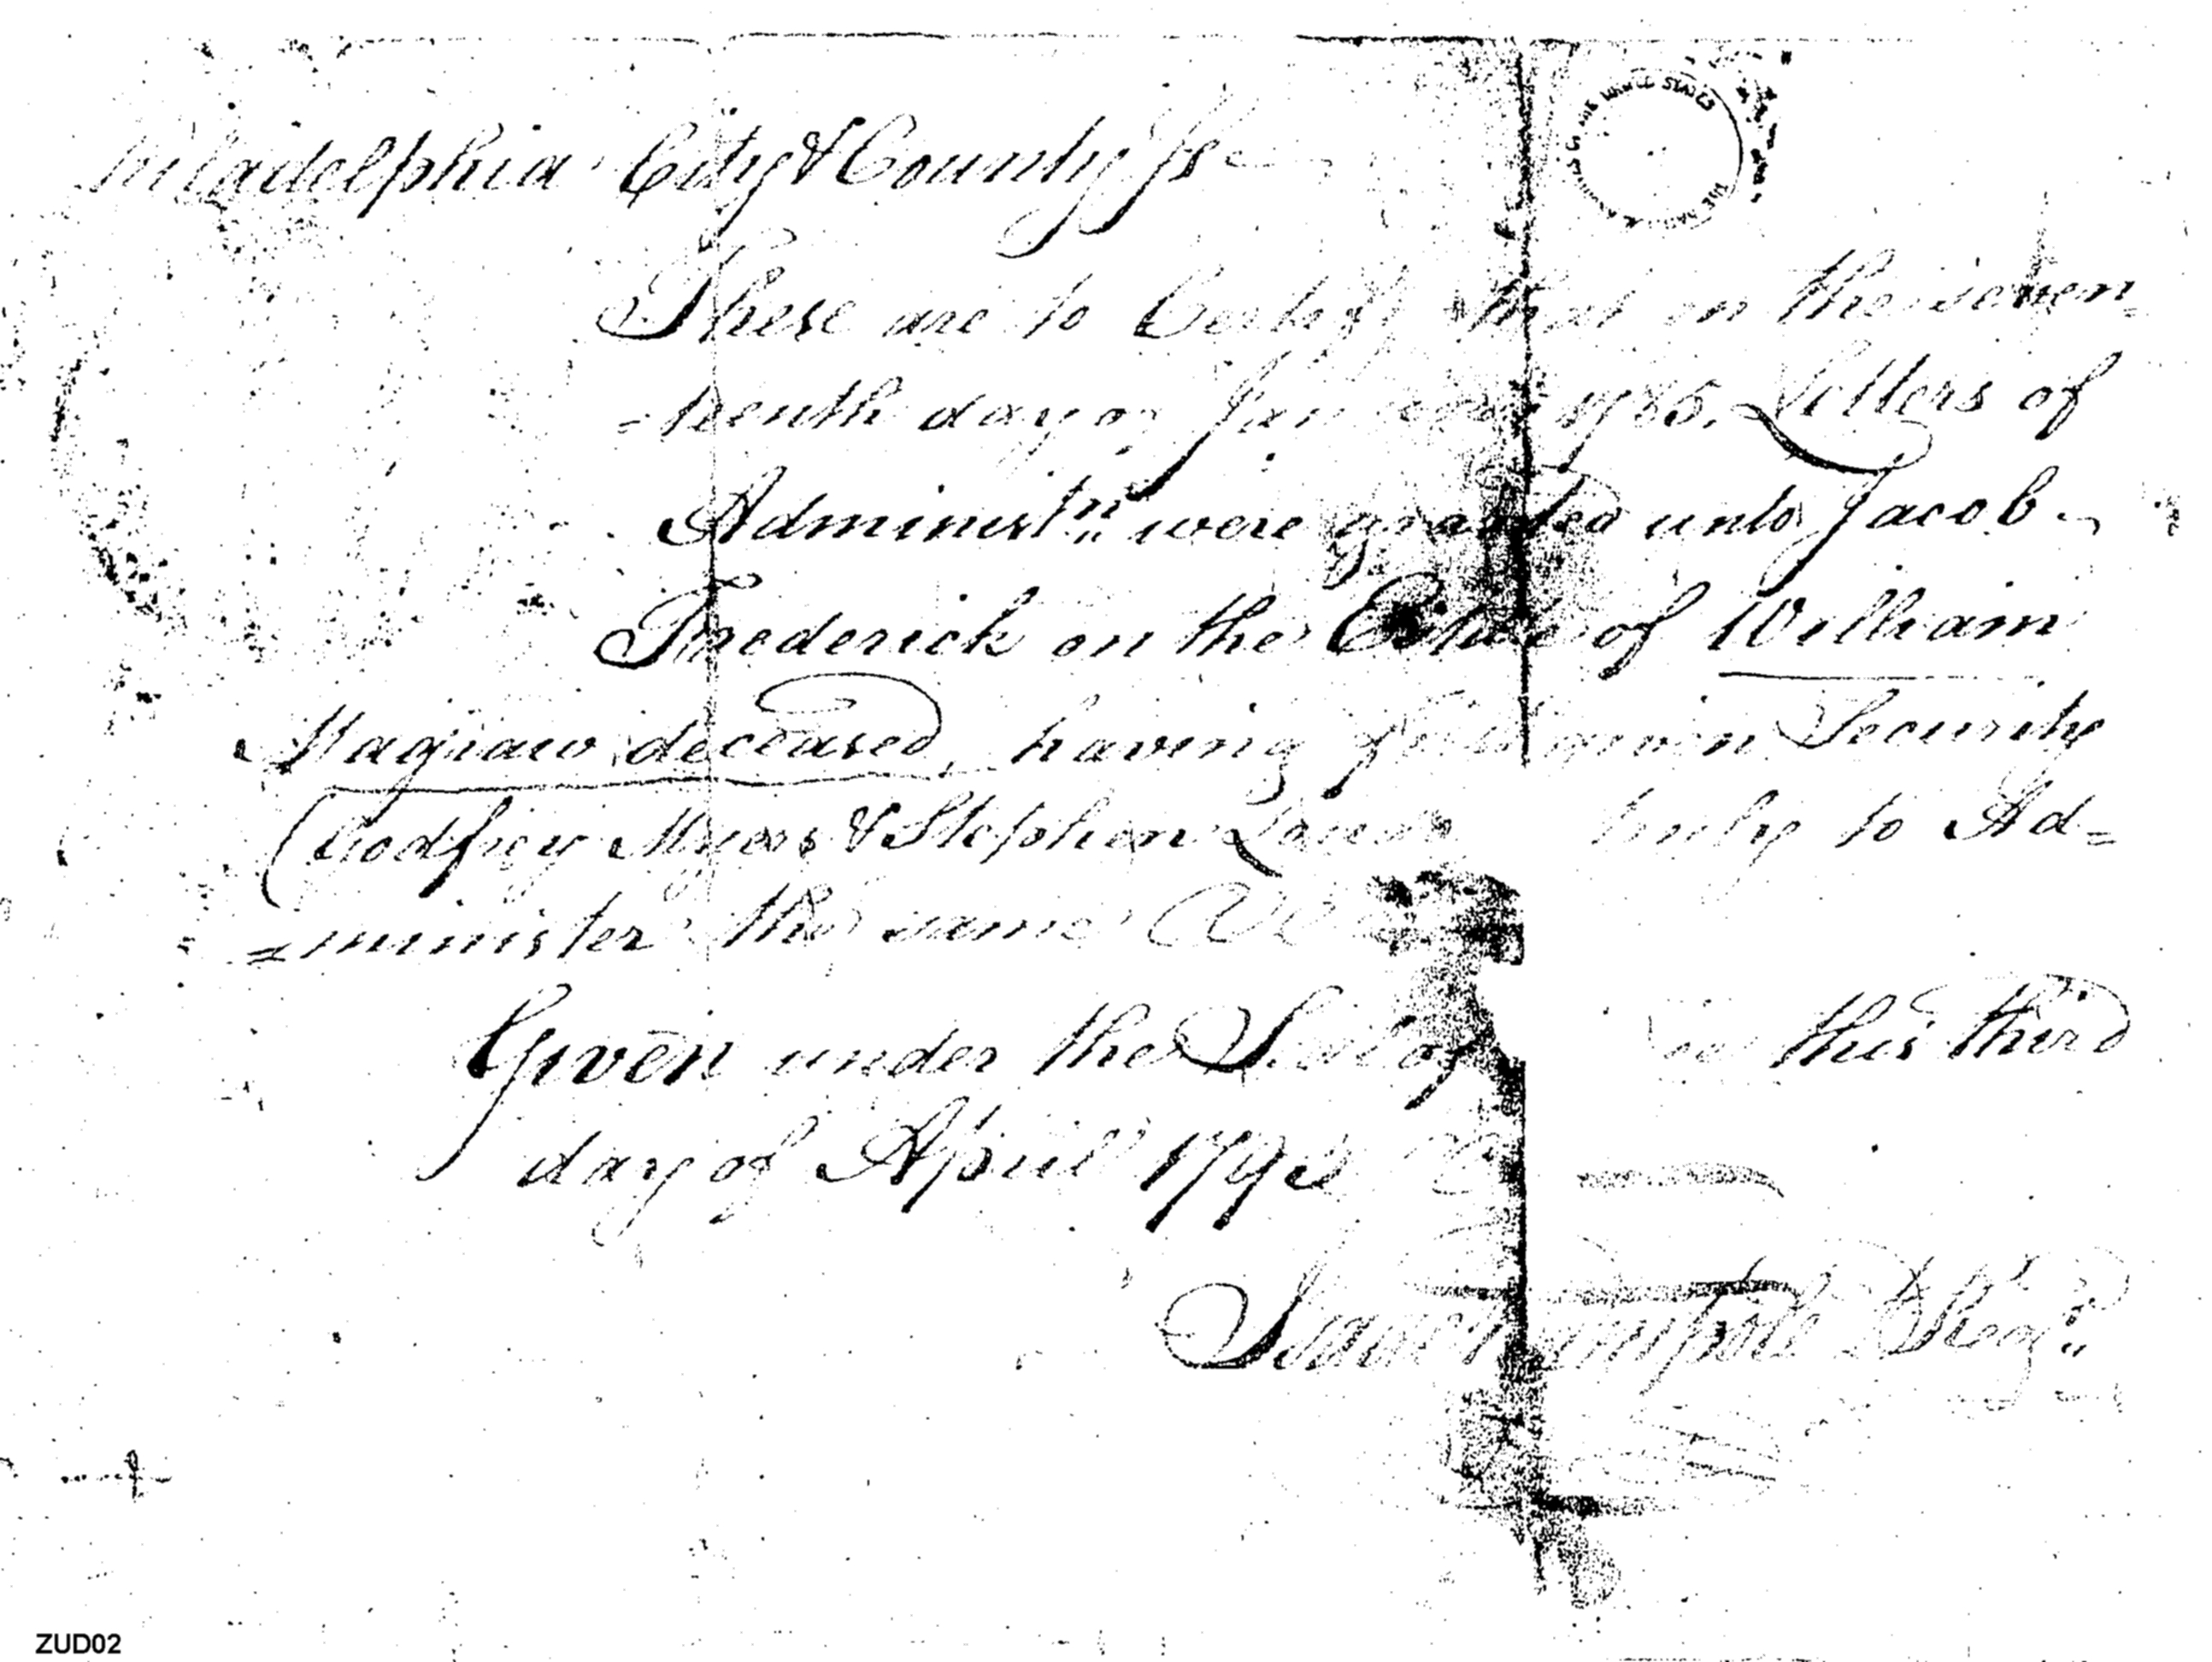 Philadelphia City & County Ss
These are to Certify that on the seven-
=teenth day of January 1785. Letters of
Administn. were granted unto Jacob
Frederick on the Estate of William
Magraw deceased, having first given Security
(Godfrey Myers & Stephen truly to Ad=
=minister the same
Given under the Seal of this third
day of April 179
Isaac Wampole D Regr.
ZUD02